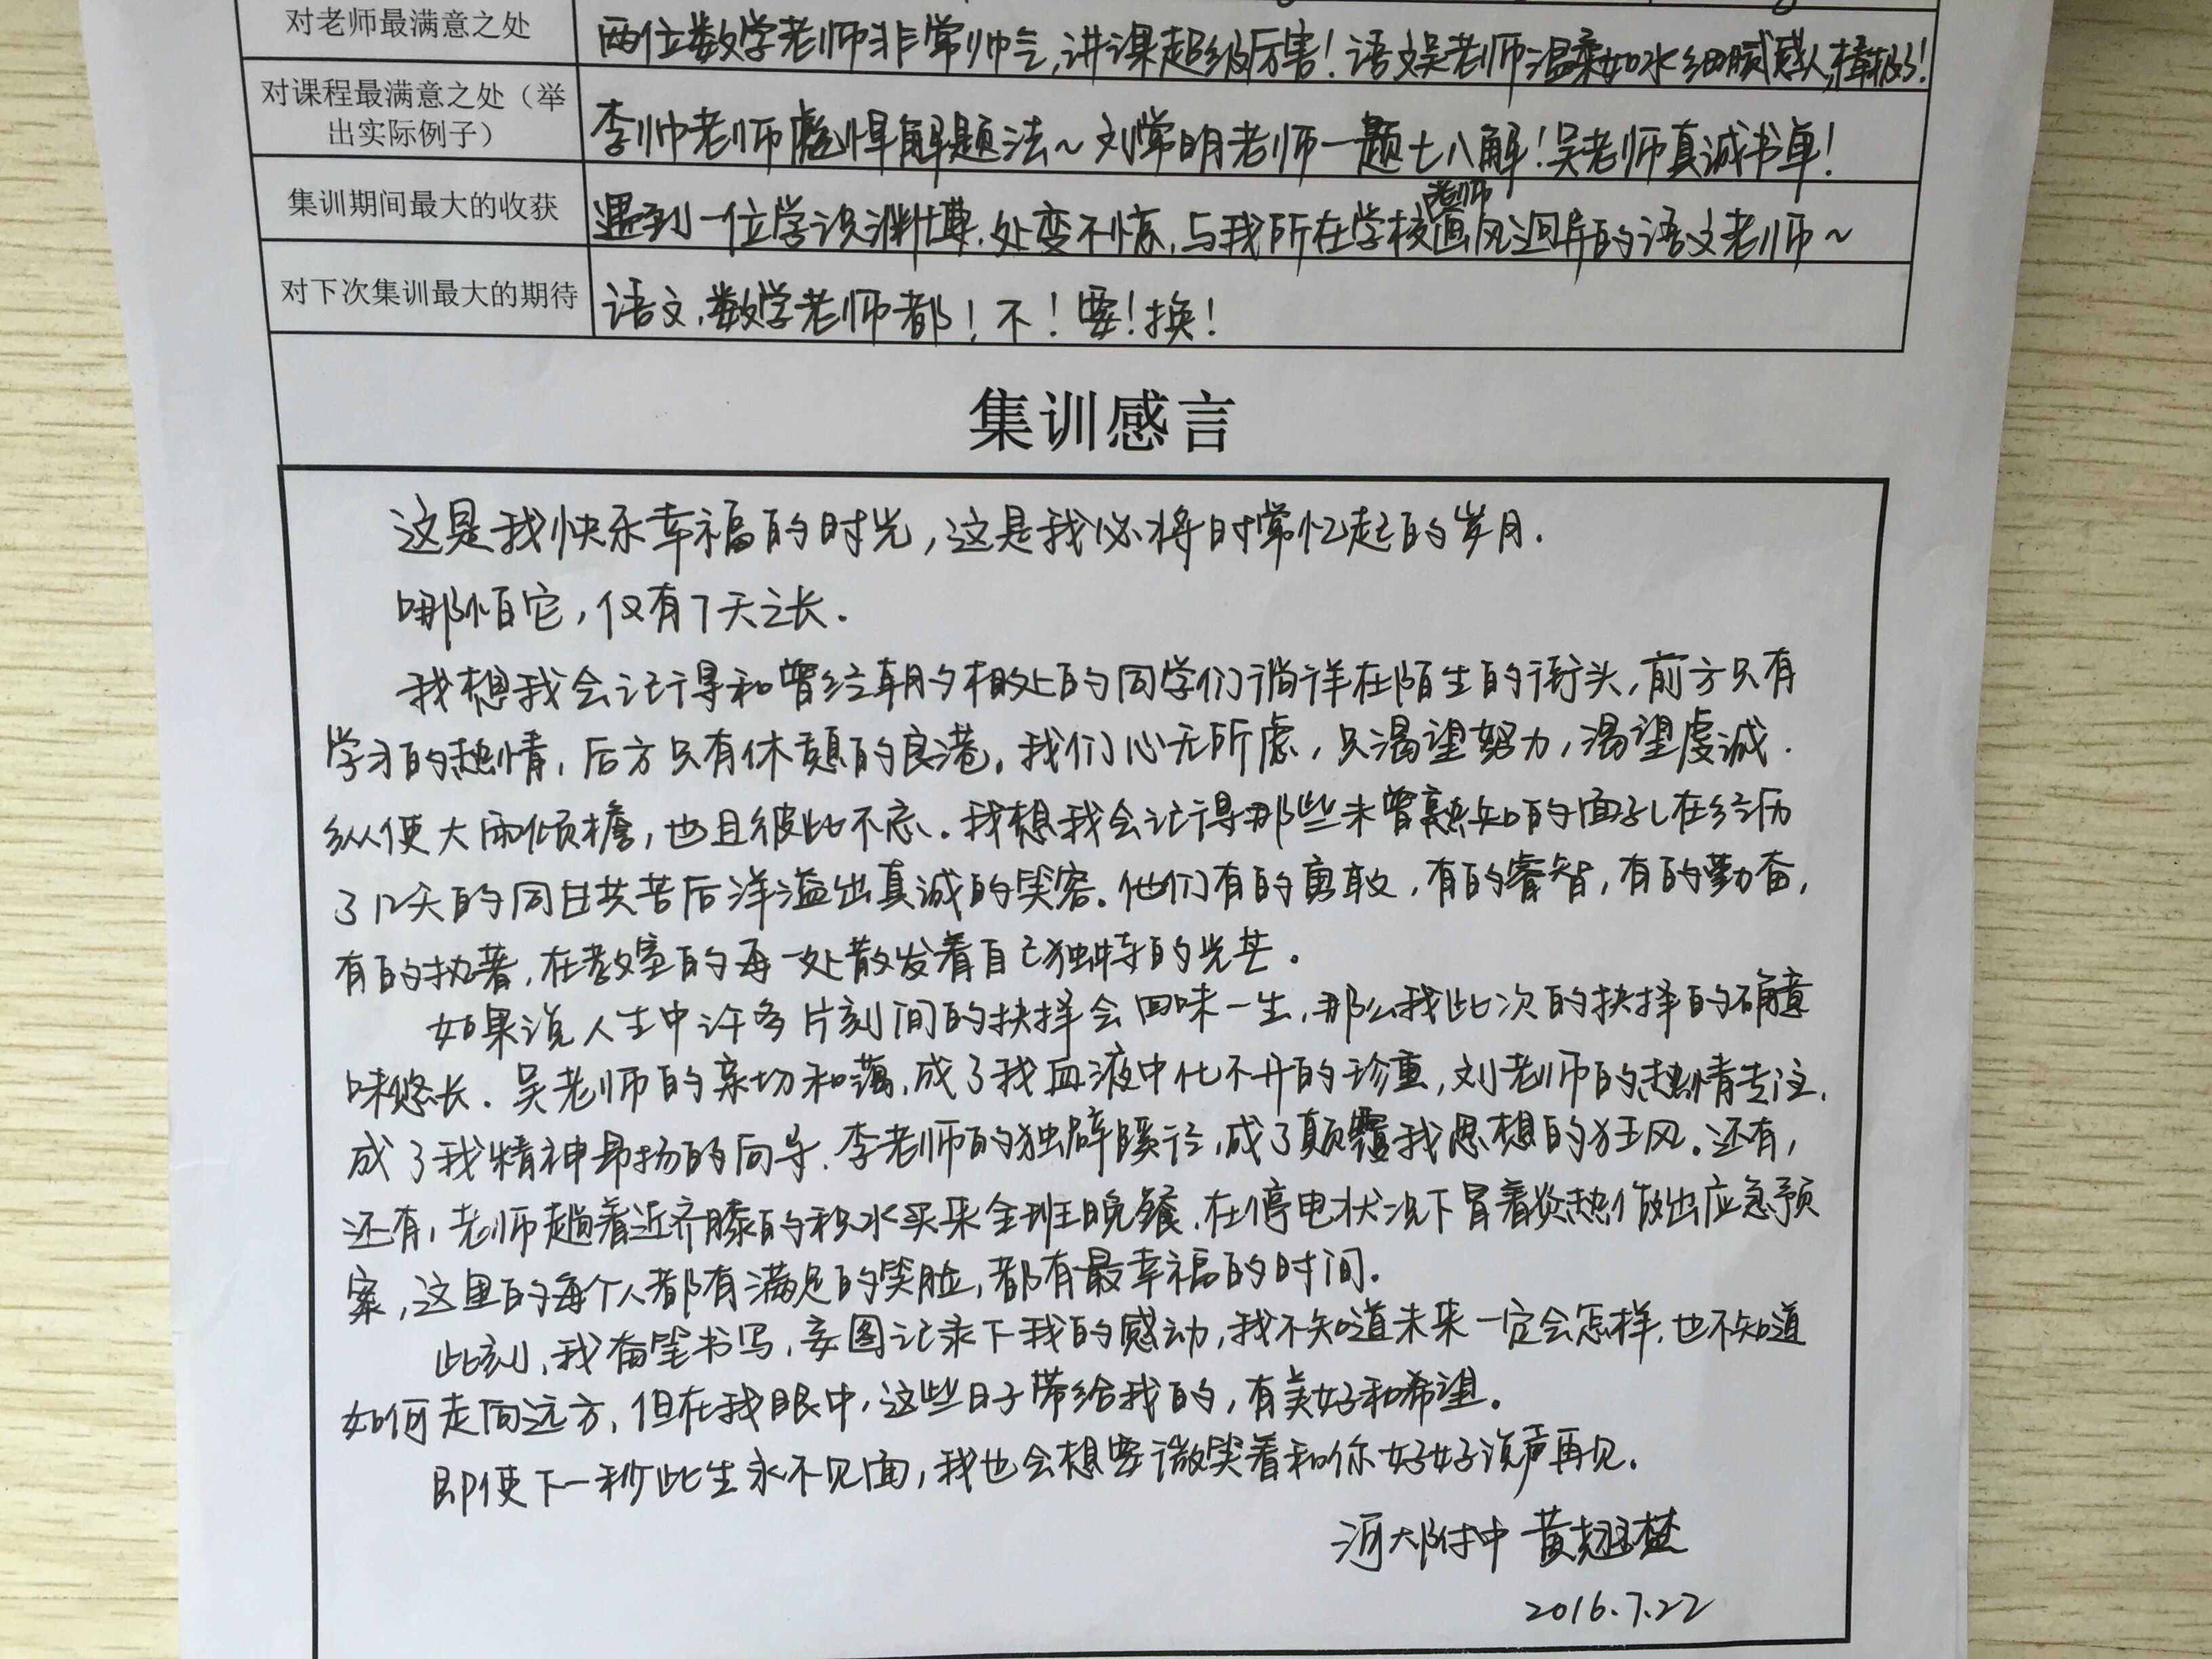 对老师最满意之处
两位数学老师非常帅气,讲课超级厉害!语文吴老师温柔如水细腻感人,棒极了!
对课程最满意之处（举
出实际例子）
李帅老师彪悍解题法~刘常明老师一题七八解!吴老师真诚书单!
集训期间最大的收获
老师
遇到一位学识渊博.处变不惊,与我所在学校画风迥异的语文老师~
对下次集训最大的期待
语文,数学老师都!不!要!换!
集训感言
这是我快乐幸福的时光,这是我必将时常忆起的岁月.
哪怕它,仅有7天之长.
我想我会记得和曾经朝夕相处的同学们徜徉在陌生的街头,前方只有
学习的热情,后方只有休憩的良港。我们心无所虑,只渴望努力,渴望虔诚.
纵使大雨倾檐,也且彼此不忘.我想我会记得那些未曾熟知的面孔在经历
了12天的同甘共苦后洋溢出真诚的笑容.他们有的勇敢,有的睿智,有的勤奋,
有的执著,在教室的每一处散发着自己独特的光芒。
如果说人生中许多片刻间的抉择会回味一生,那么我此次的抉择的确意
味悠长.吴老师的亲切和蔼,成了我血液中化不开的珍重,刘老师的热情专注,
成了我精神昂扬的向导.李老师的独辟蹊径,成了颠覆我思想的狂风.还有,
还有,老师趟着近齐膝的积水买来全班晚餐.在停电状况下冒着炎热做出应急预
案,这里的每个人都有满足的笑脸,都有最幸福的时间.
此刻,我奋笔书写,妄图记录下我的感动,我不知道未来一定会怎样.也不知道
如何走向远方,但在我眼中,这些日子带给我的,有美好和希望。
即使下一秒此生永不见面,我也会想要微笑着和你好好说声再见.
河大附中 黄翘楚
2016.7.22